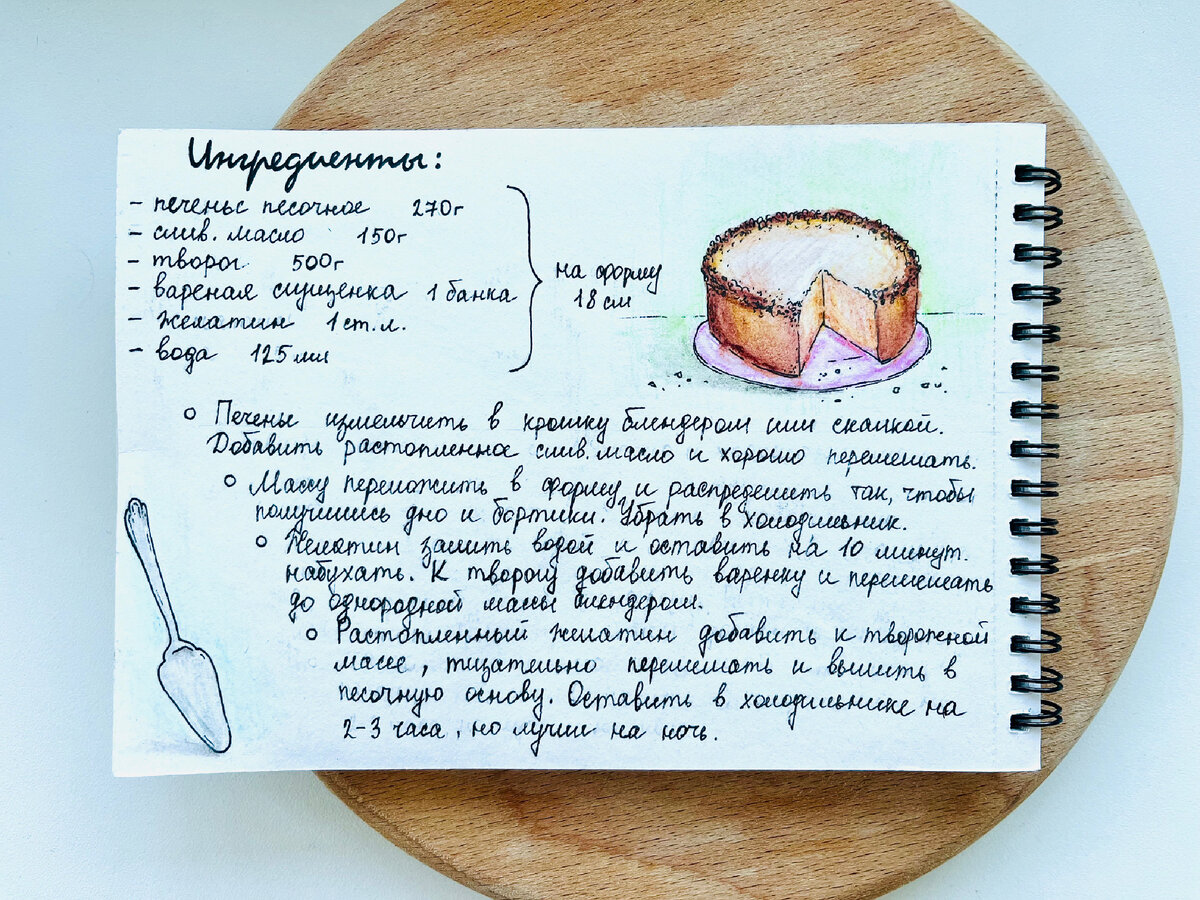 Ингредиенты:
- печенье песочное 270г
- слив. масло 150г
- творог 500г
- вареная сгущенка 1 банка
- желатин 1 ст.л.
- вода 125 мл
на форму
18 см
Печенье измельчить в крошку блендером или скалкой.
Добавить растопленное слив. масло и хорошо перемешать.
Массу переложить в форму и распределить так, чтобы
получились дно и бортики. Убрать в холодильник.
Желатин залить водой и оставить на 10 минут.
набухать. К творогу добавить варенку и перемешать
до однородной массы блендером.
Растопленный желатин добавить к творожной
массе, тщательно перемешать и вылить в
песочную основу. Оставить в холодильнике на
2-3 часа, но лучше на ночь.